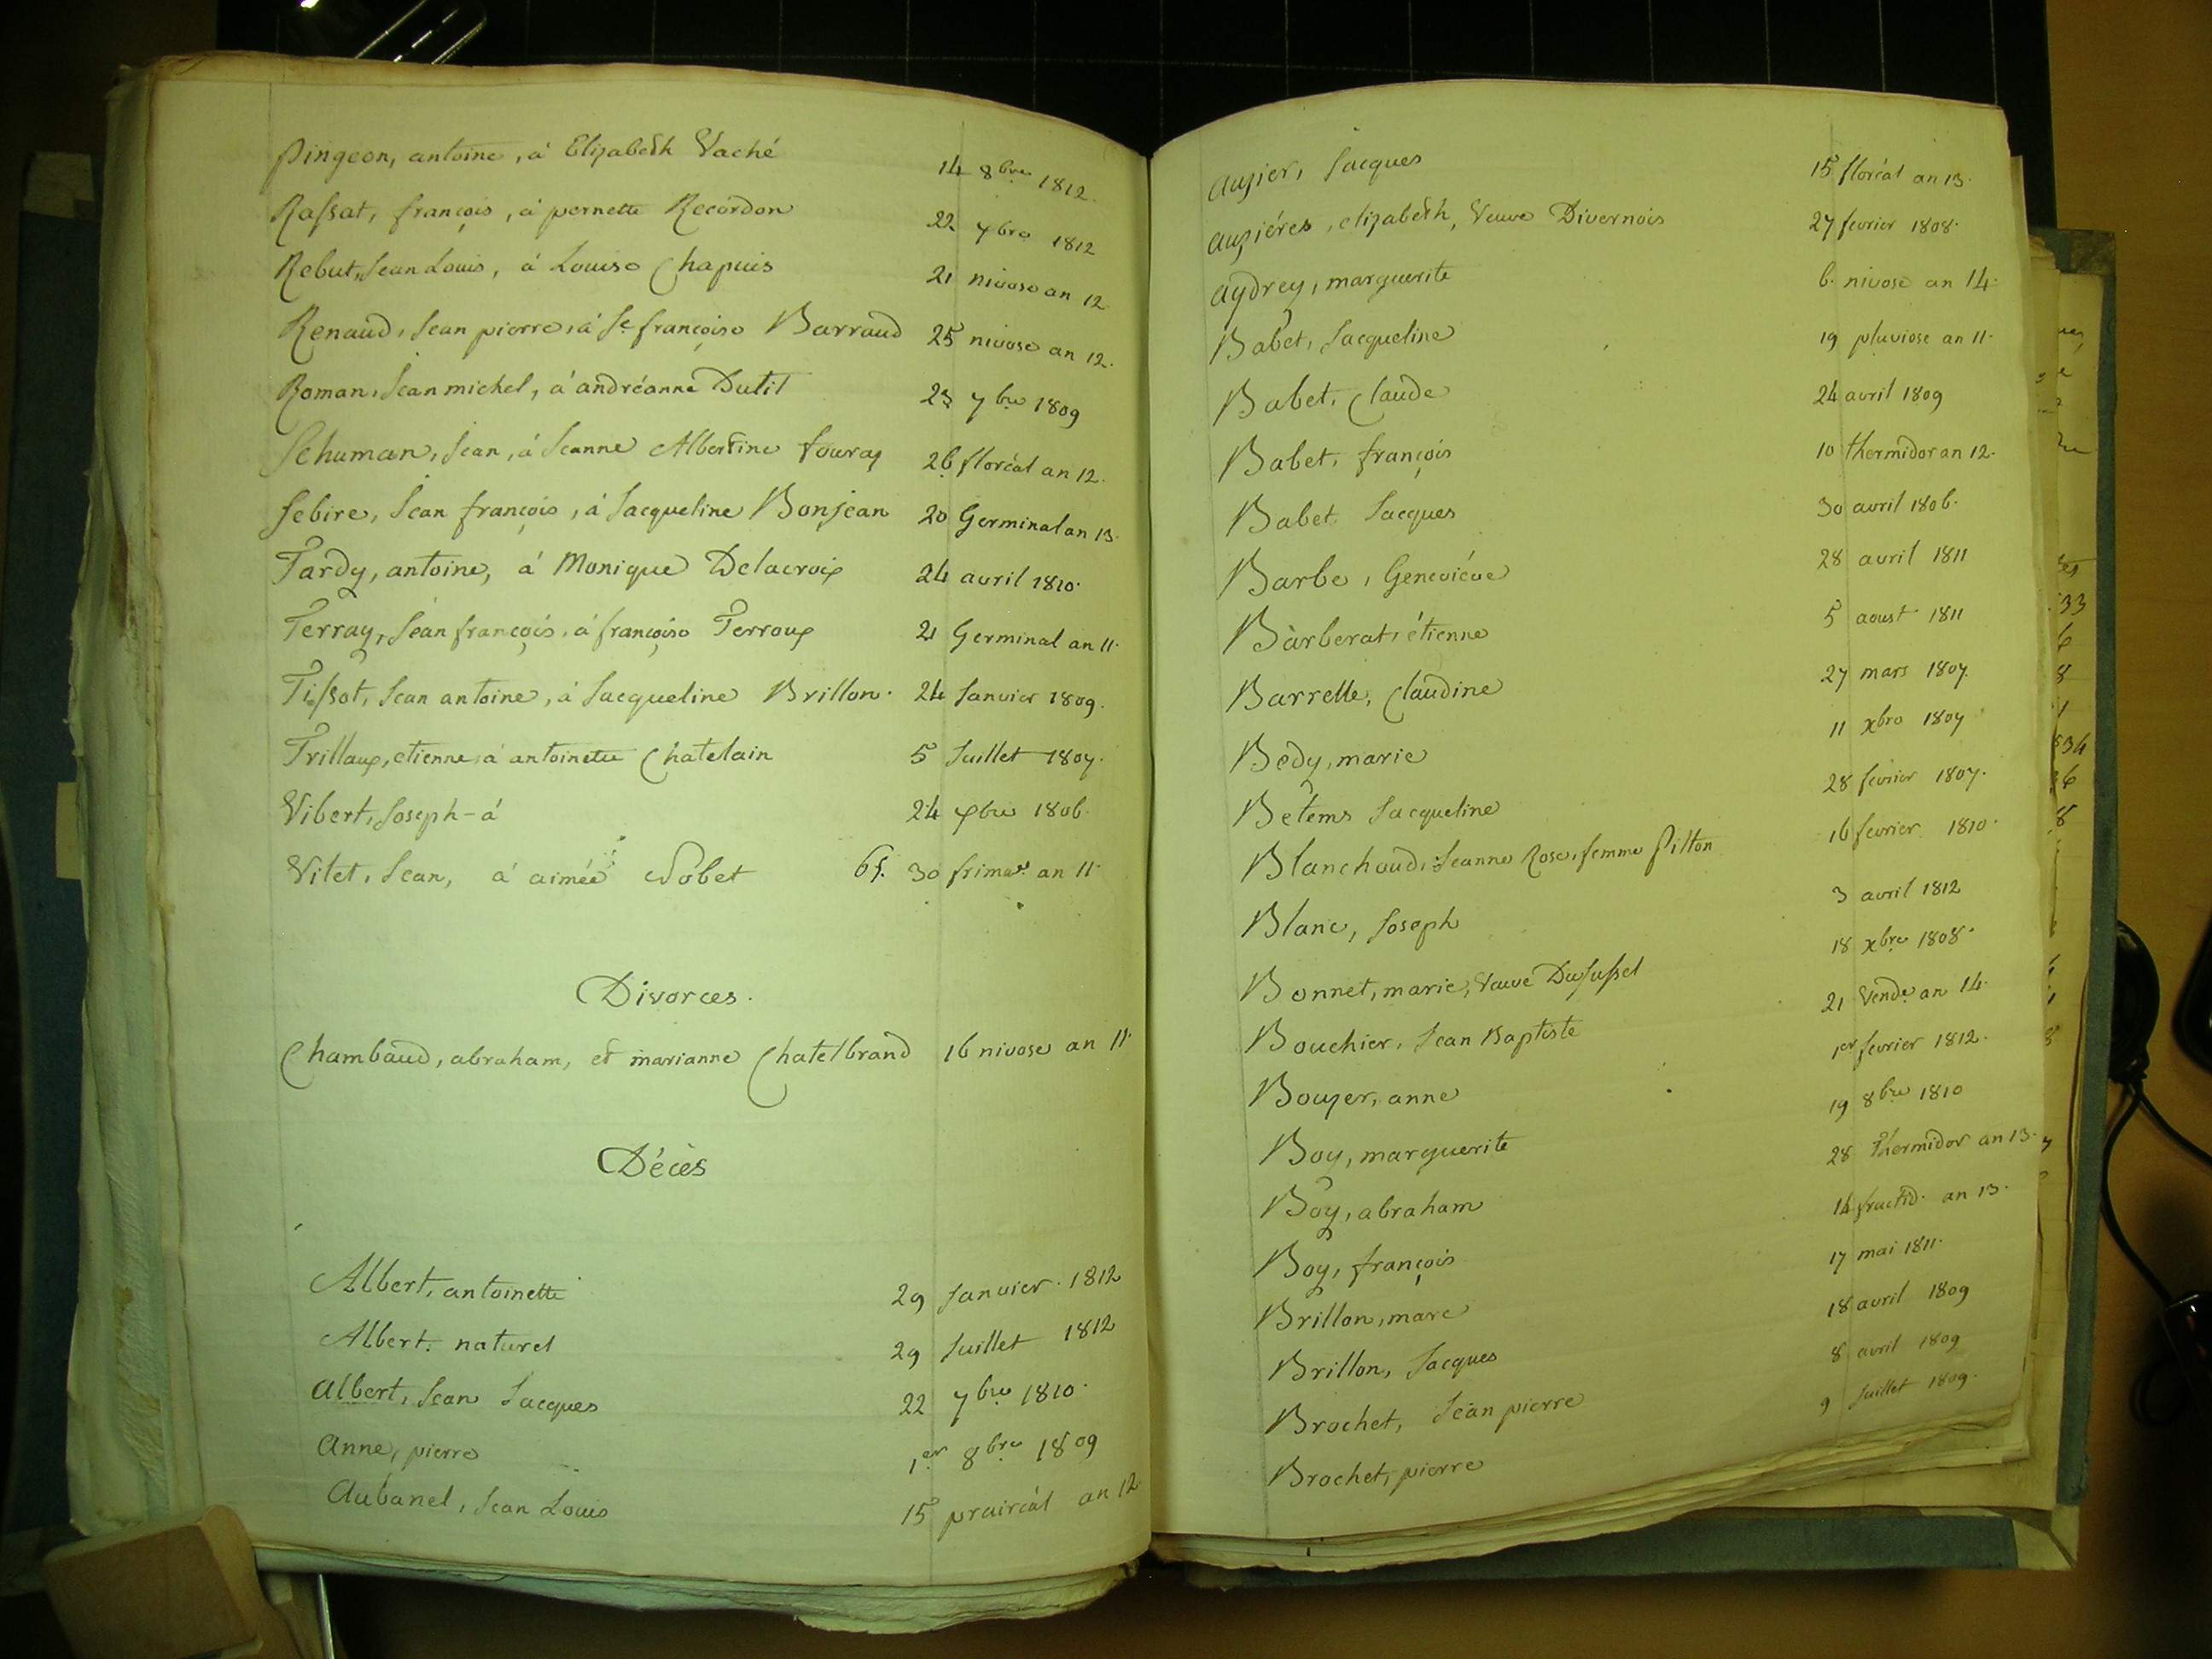 Pingeon, antoine, à Elizabeth Vaché 14 8bre 1812.
Rassat, françois, à pernette Recordon 22 7bre 1812
Rebut, Jean Louis, à Louise Chapuis 21 nivose an 12
Renaud, Jean pierre, à Je. françoise Barraud 25 nivose an 12.
Roman, Jean michel, à andréanne Dutil 23 7bre 1809
Schuman, Jean, à Jeanne Albertine fouray 26 floréal an 12.
Sebire, Jean françois, à Jacqueline Bonjean 20 Germinal an 13.
Tardy, antoine, à Monique Delacroix 24 avril 1810.
Terray, Jean françois, à françoise Terroux 21 Germinal an 11.
Tissot, Jean antoine, à Jacqueline Brillon. 24 Janvier 1809.
Trillaux, etienne à antoinette Chatelain 5 Juillet 1807.
Vibert, Joseph - à 24 1806.
Vilet, Jean, à aimée Sobet 30 frimre. an 11.
Divorces.
Chambaud, abraham, et marianne Chatelbrand 16 nivose an 11.
Décès
Albert, antoinette 29 Janvier. 1812
Albert. naturel 29 Juillet 1812
albert, Jean Jacques 22 7bre 1810.
Anne, pierre 1er. 8bre 1809
Aubanel, Jean Louis 15 prairéal an 12.
auzier, Jacques 15 floréal an 13.
auziéres, elizabeth, Veuve Divernois 27 fevrier 1808.
aydrey, marguerite 6. nivose an 14.
Babet, Jacqueline 19 pluviose an 11.
Babet, Claude 24 avril 1809
Babet, françois 10 thermidor an 12.
Babet Jacques 30 avril 1806.
Barbe, Geneviéve 28 avril 1811
Barberat, étienne 5 aoust 1811
Barrelle, Claudine 27 mars 1807.
Bedy, marie 11 xbre 1807
Betems Jacqueline 28 fevrier 1807.
Blanchaud, Jeanne Rose, femme Pitton 16 fevrier 1810.
Blanc, Joseph 3 avril 1812
Bonnet, marie, Veuve Dujussel 18 xbre 1808.
Bouchier, Jean Baptiste 21 Vende. an 14.
Bouzer, anne 1er fevrier 1812.
Boy, marguerite 19 8bre 1810
Boy, abraham 28 thermidor an 13.
Boy, françois 14 fructid. an 13.
Brillon, marc 17 mai 1811.
Brillon, Jacques 18 avril 1809
Brochet, Jean pierre 8 avril 1809
Brochet, pierre 9 Juillet 1809.